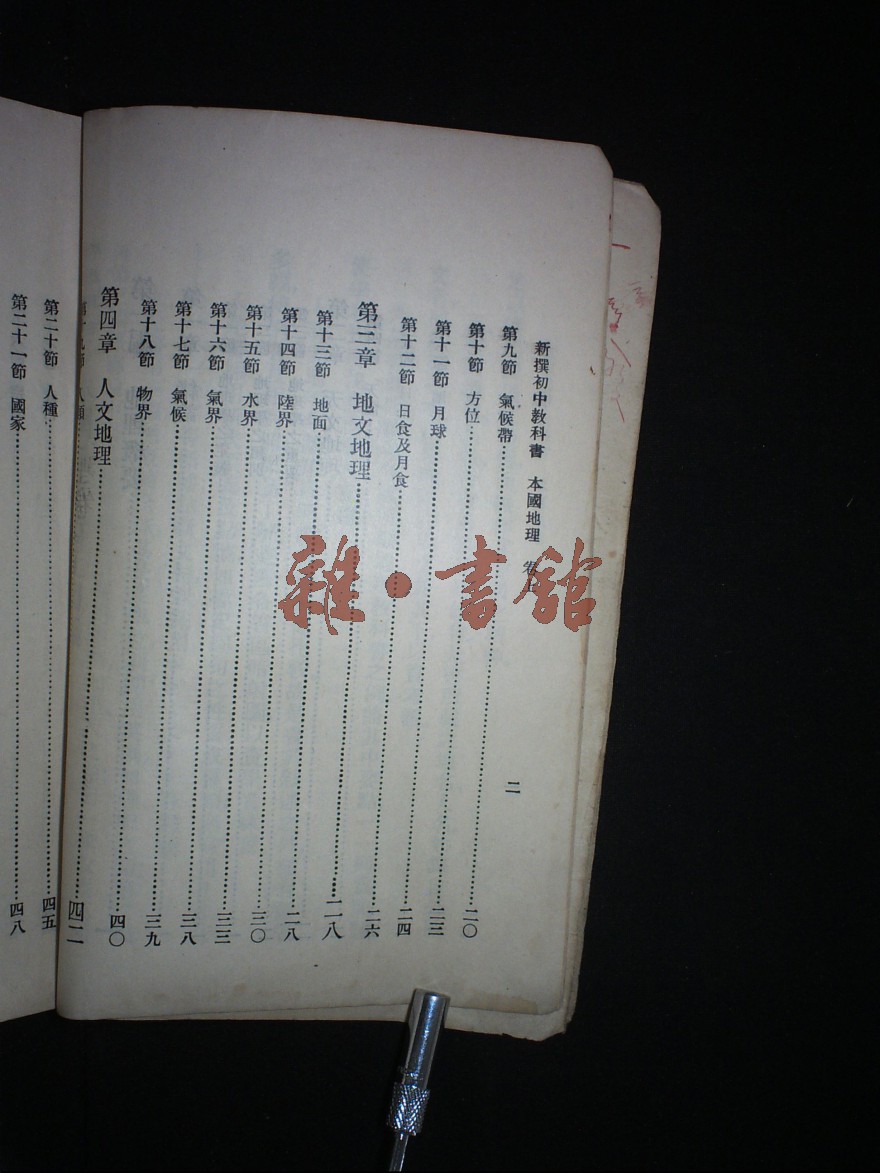 新撰初中教科書 本國地理 卷
二
第九節 氣候帶……二〇
第十節 方位……二三
第十一節 月球……二四
第十二節 日食及月食……二六
第三章 地文地理……二八
第十三節 地面……二八
第十四節 陸界……三〇
第十五節 水界……三三
第十六節 氣界……三八
第十七節 氣候……三九
第十八節 物界……四〇
第四章 人文地理……四二
第二十節 人種……四五
第二十一節 國家……四八
雜·書館